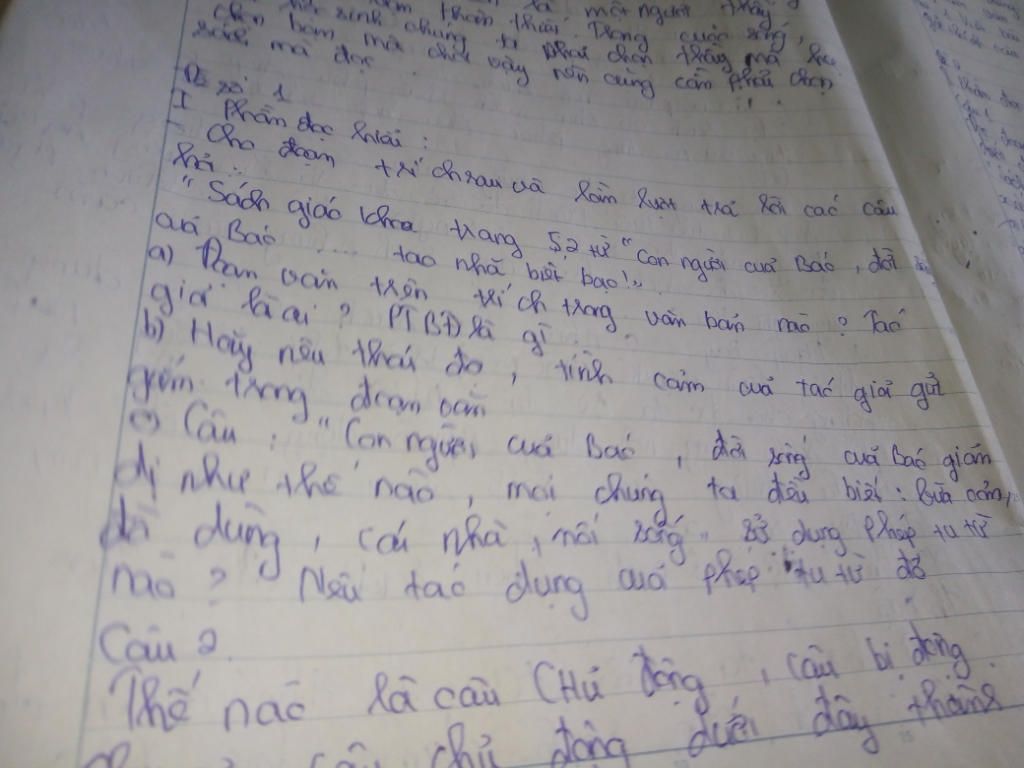 là một người thầy
thân thiết. Trong cuộc sống,
sinh chúng ta phải chọn thầy mà
chọn bạn mà chơi vậy nên cũng cần phải chọn
sách mà đọc
Đề số 1
I Phần đọc hiểu:
Cho đoạn trích sau và lần lượt trả lời các câu
hỏi:
"Sách giáo khoa trang 52 từ "Con người của Bác, đời
của Bác .... tao nhã biết bao!"
a) Đoạn văn trên trích trong văn bản nào? Tác
giả là ai? PTBĐ là gì
b) Hãy nêu thái độ, tình cảm của tác giả gửi
gắm trong đoạn văn
c) Câu: "Con người của Bác, đời sống của Bác giản
dị như thế nào, mọi chúng ta đều biết: bữa cơm,
đồ dùng, cái nhà, lối sống" sử dụng phép tu từ
nào? Nêu tác dụng của phép tu từ đó
Câu 2
Thế nào là câu CHủ động, câu bị động.
câu chủ động dưới đây thành